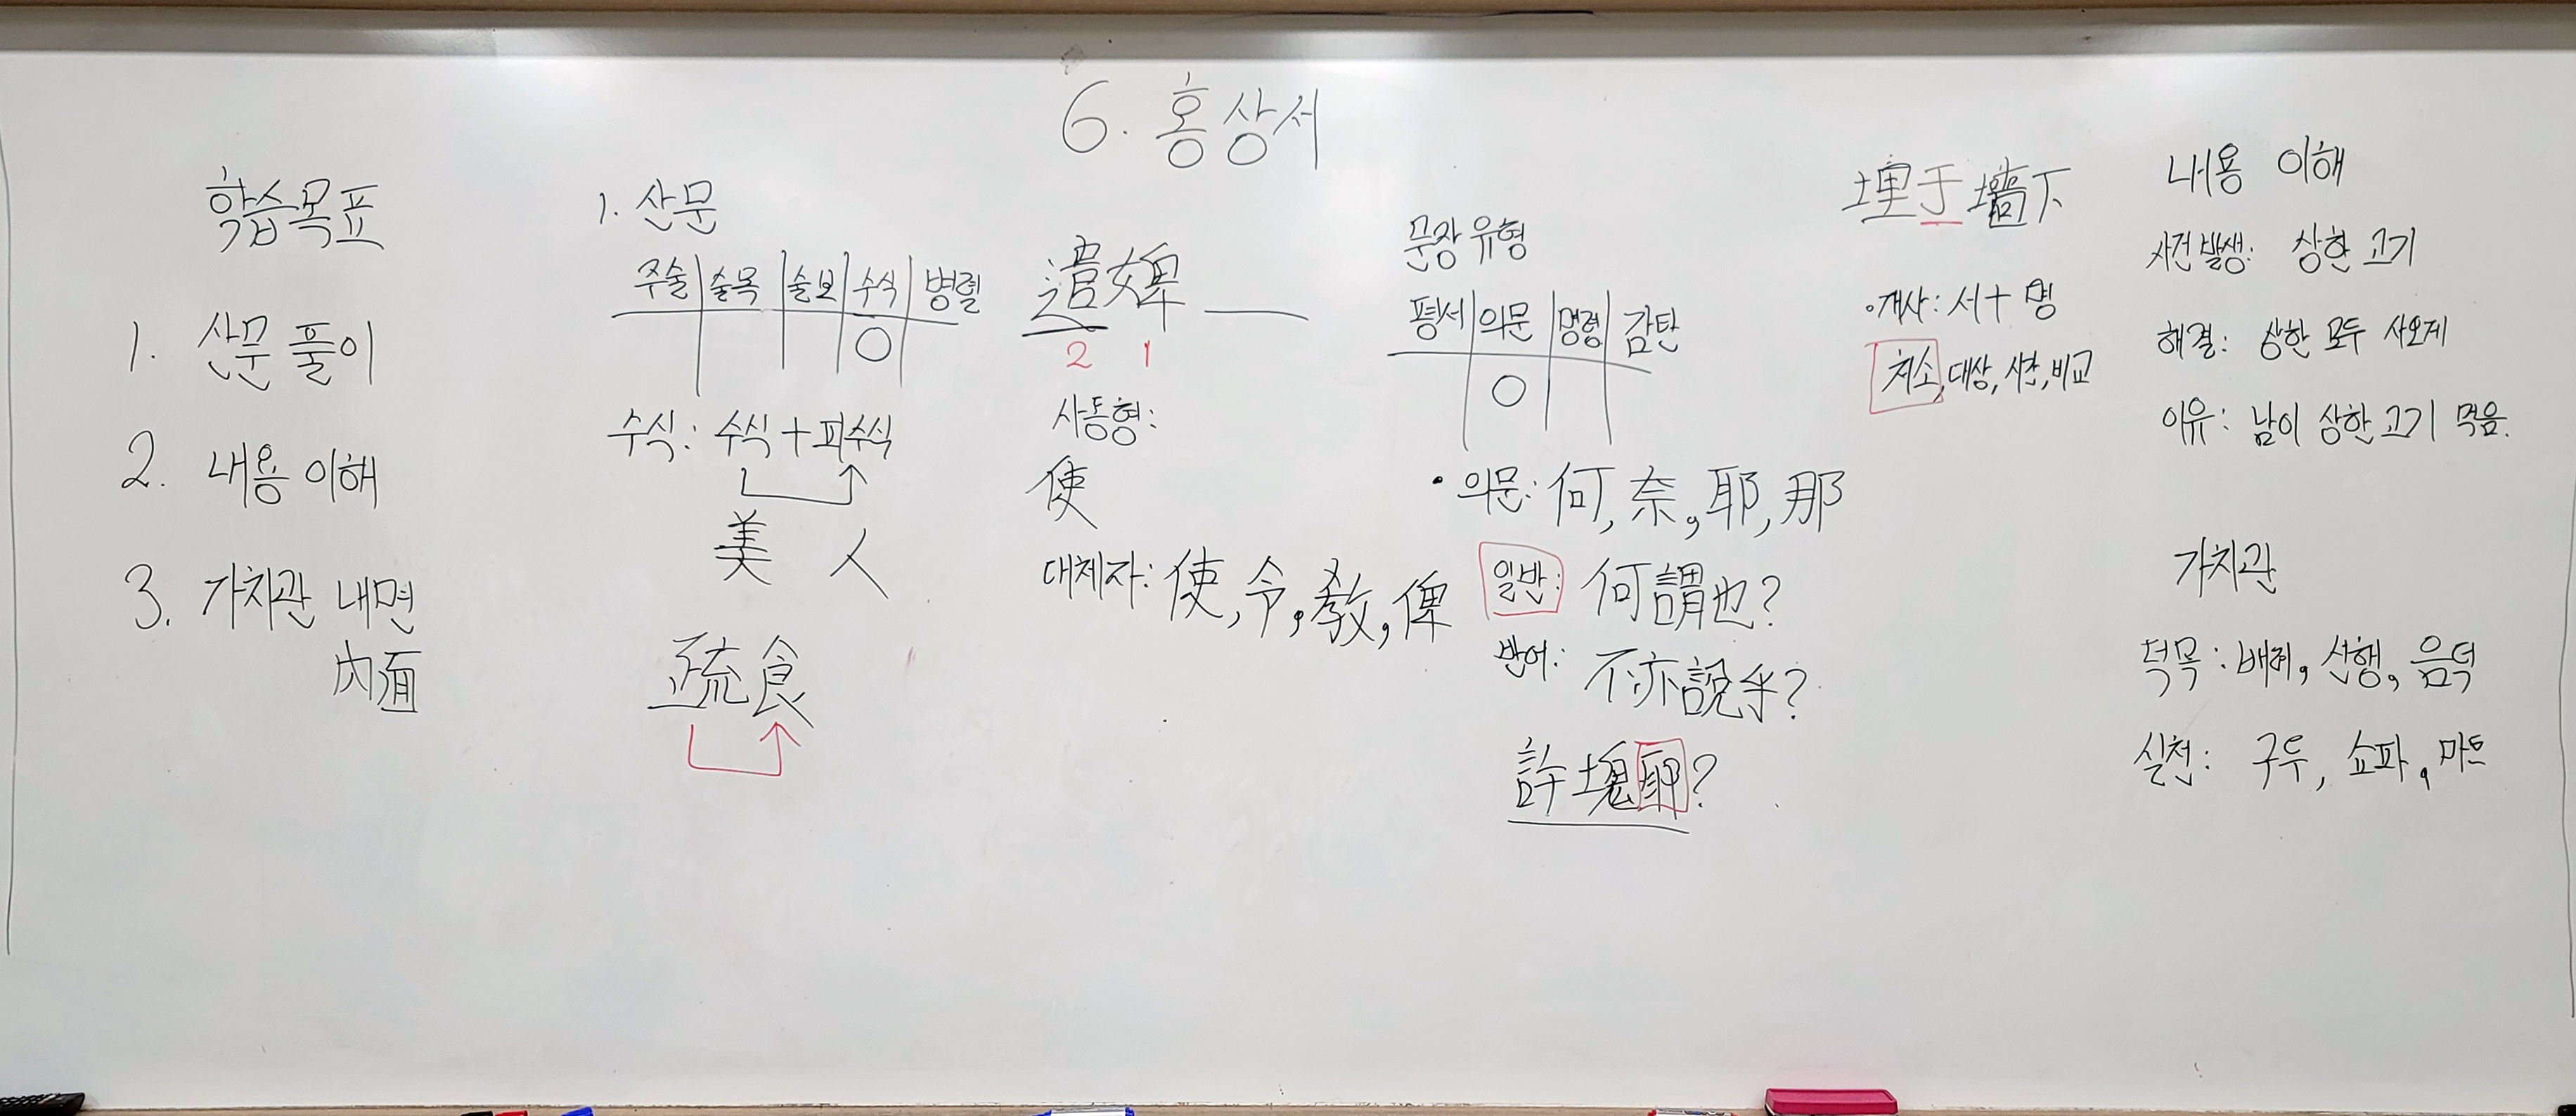 6. 홍상서
학습목표
1. 산문 풀이
2. 내용 이해
3. 가치관 내면
内面
1. 산문
주술 술목 술보 수식 병렬
O
수식: 수식+피수식
美 人
疏食
遣婢
2 1
사동형:
使
대체자: 使, 令, 敎, 俾
문장 유형
평서 의문 명령 감탄
O
• 의문: 何, 奈, 耶, 那
일반: 何謂也?
반어: 不亦說乎?
許塊耶?
埋于墻下
•개사: 서+명
처소, 대상, 시간, 비교
내용 이해
사건 발생: 상한 고기
해결: 상한 모두 사오게
이유: 남이 상한 고기 먹음.
가치관
덕목: 배려, 선행, 음덕
실천: 구두, 쇼파, 마트